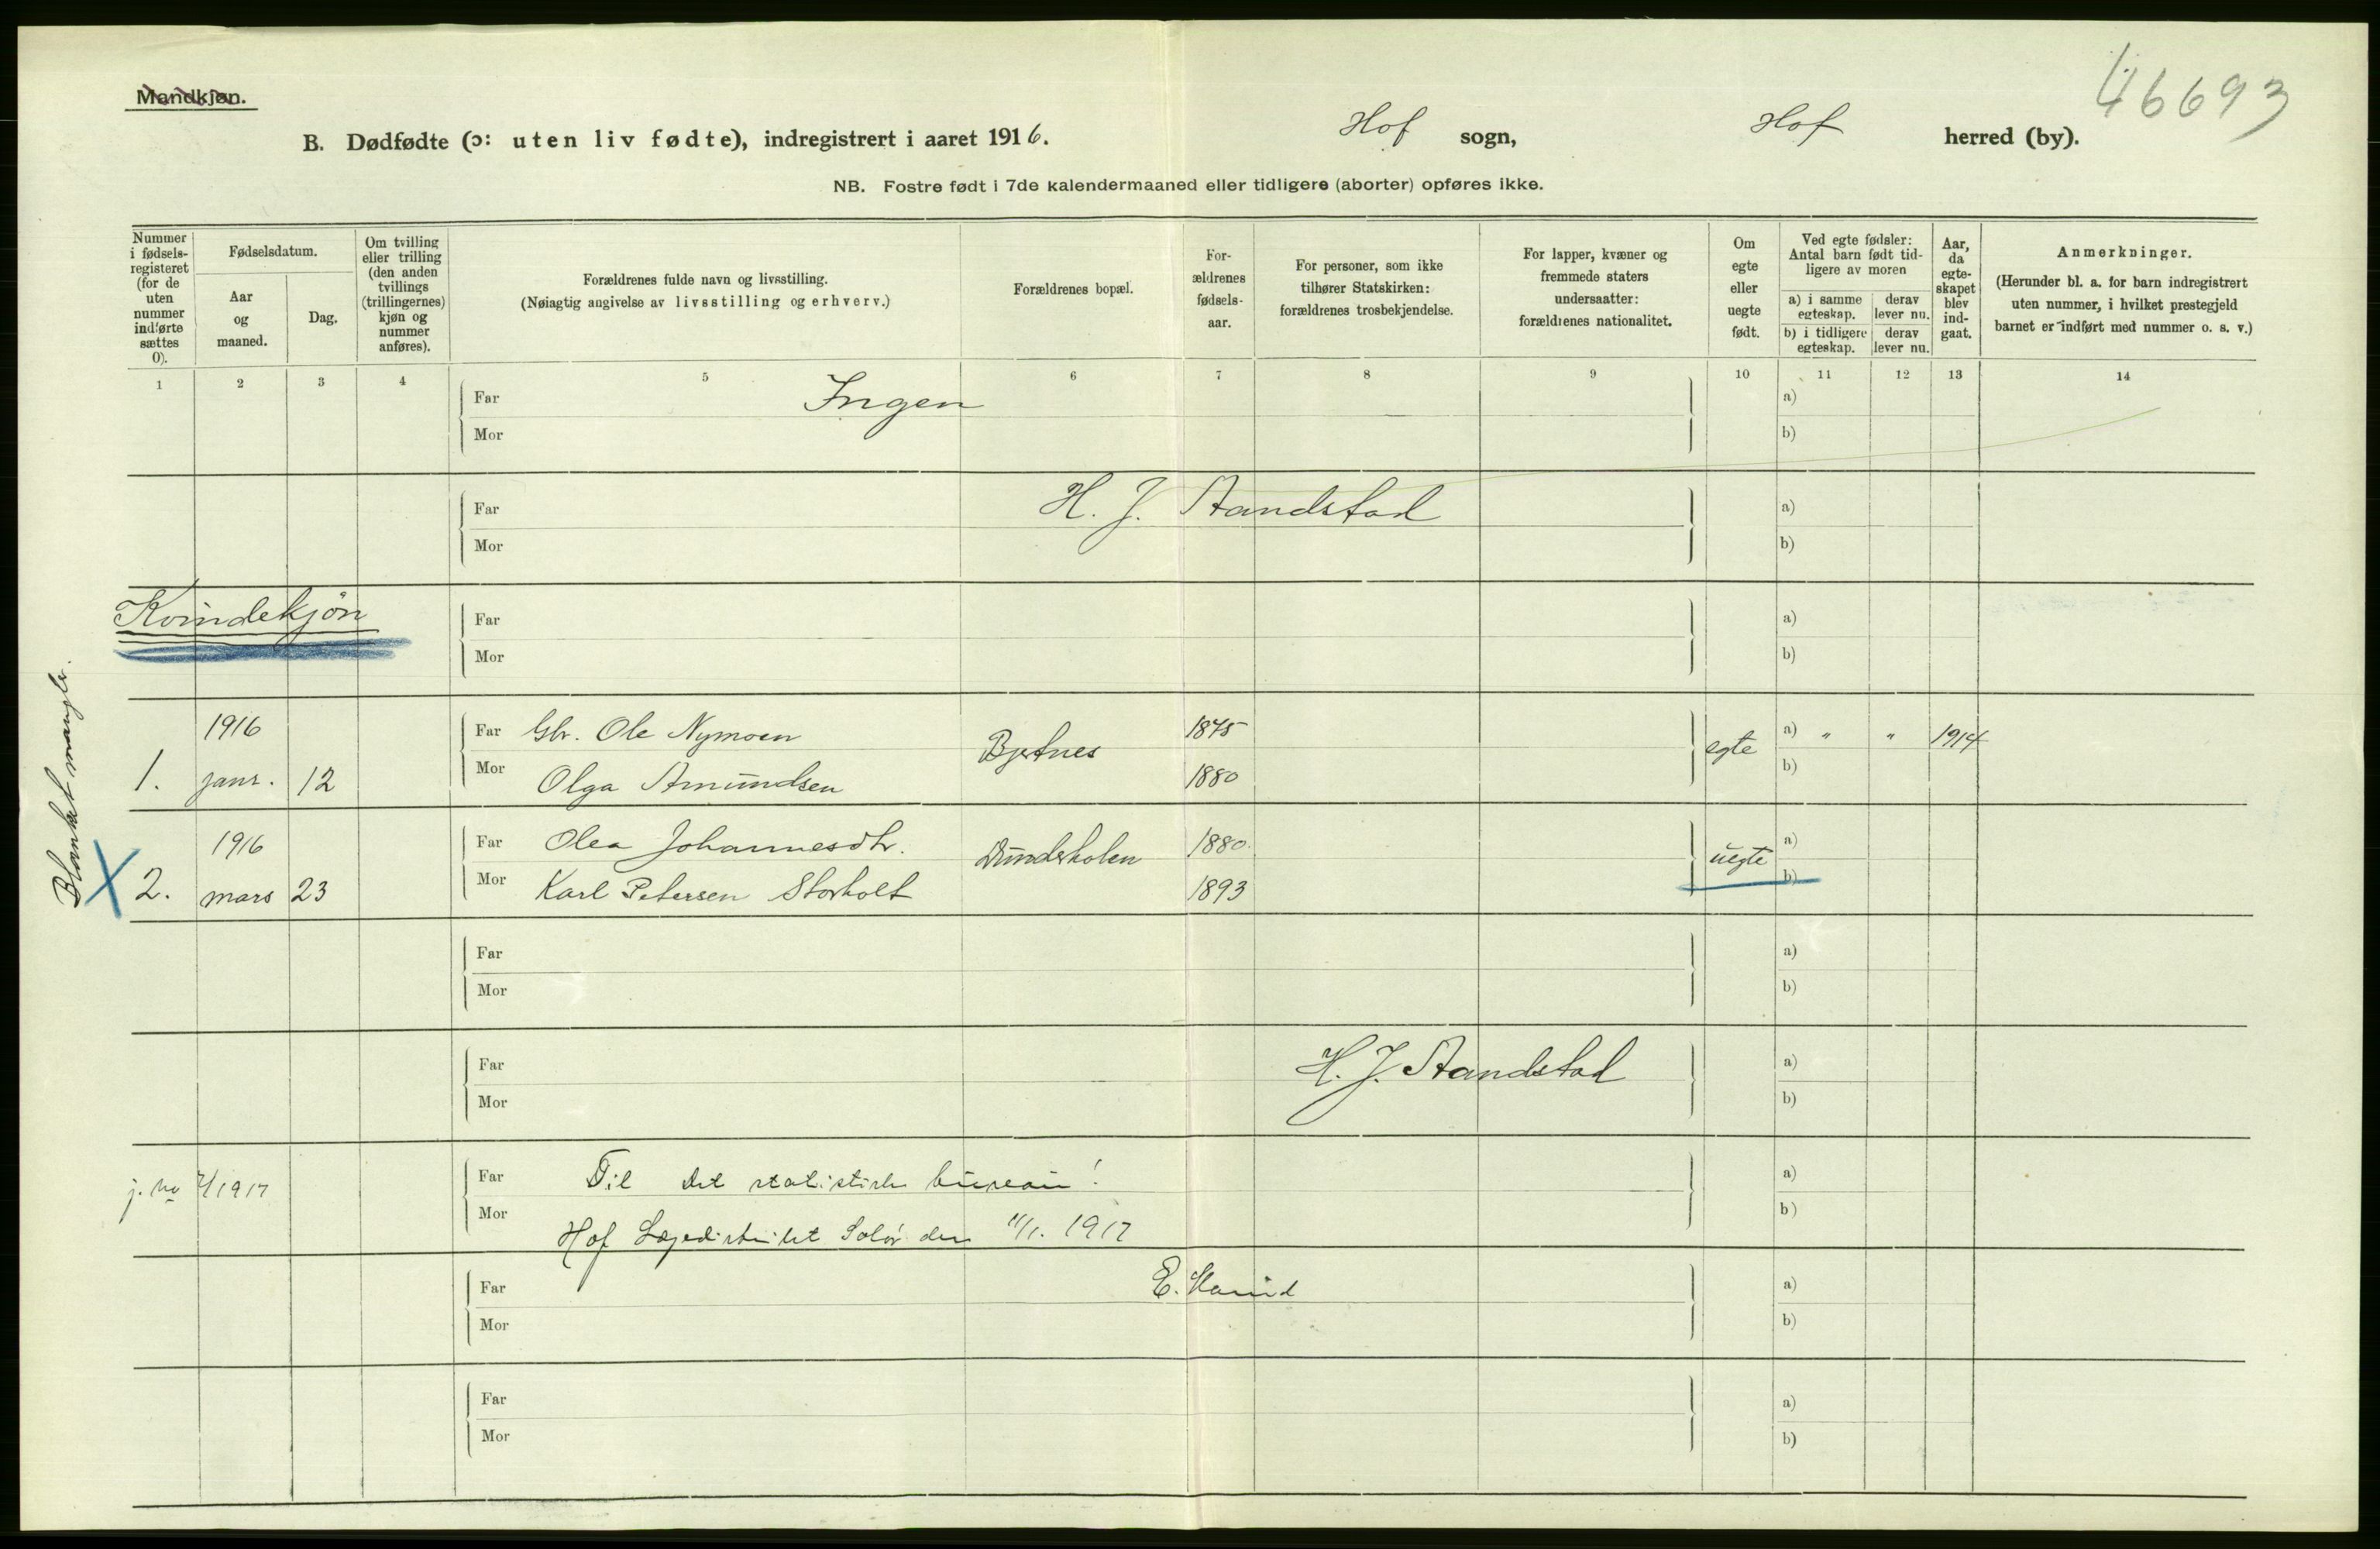 Mandkjøn.
46693
B. Dødfødte (ɔ: uten liv fødte), indregistrert i aaret 1916. Hof sogn, Hof herred (by).
NB. Fostre født i 7de kalendermaaned eller tidligere (aborter) opføres ikke.
Nummer i fødsels-registeret (for de uten nummer indførte sættes 0).
Fødselsdatum.
Aar og maaned.
Dag.
Om tvilling eller trilling (den anden tvillings (trillingernes) kjøn og nummer anføres).
Forældrenes fulde navn og livsstilling.
(Nøiagtig angivelse av livsstilling og erhverv.)
Forældrenes bopæl.
For-ældrenes fødsels-aar.
For personer, som ikke tilhører Statskirken: forældrenes trosbekjendelse.
For lapper, kvæner og fremmede staters undersaatter: forældrenes nationalitet.
Om egte eller uegte født.
Ved egte fødsler: Antal barn født tid-ligere av moren
a) i samme egteskap.
derav lever nu.
b) i tidligere egteskap.
derav lever nu.
Aar, da egte-skapet blev ind-gaat.
Anmerkninger.
(Herunder bl. a. for barn indregistrert uten nummer, i hvilket prestegjeld barnet er indført med nummer o. s. v.)
1 2 3 4 5 6 7 8 9 10 11 12 13 14
Far Ingen a)
Mor b)
Far H. J. Standstad a)
Mor b)
Kvindekjøn
Far a)
Mor b)
Blanket mangler.
1916 Far Gbr. Ole Nymoen Bjetnes 1875 egte a) " " 1914
1. janr. 12 Mor Olga Amundsen 1880 b)
1916 Far Olea Johannesdtr. Dunderholen 1880. uegte a)
X 2. mars 23 Mor Karl Petersen Storholt 1893 b)
Far a)
Mor b)
Far H. J. Standstad a)
Mor b)
j. no 7/1917 Far Til det statistiske bureau! a)
Mor Hof Lægedistrikt Solør den 11/1. 1917 b)
Far E. a)
Mor b)
Far a)
Mor b)